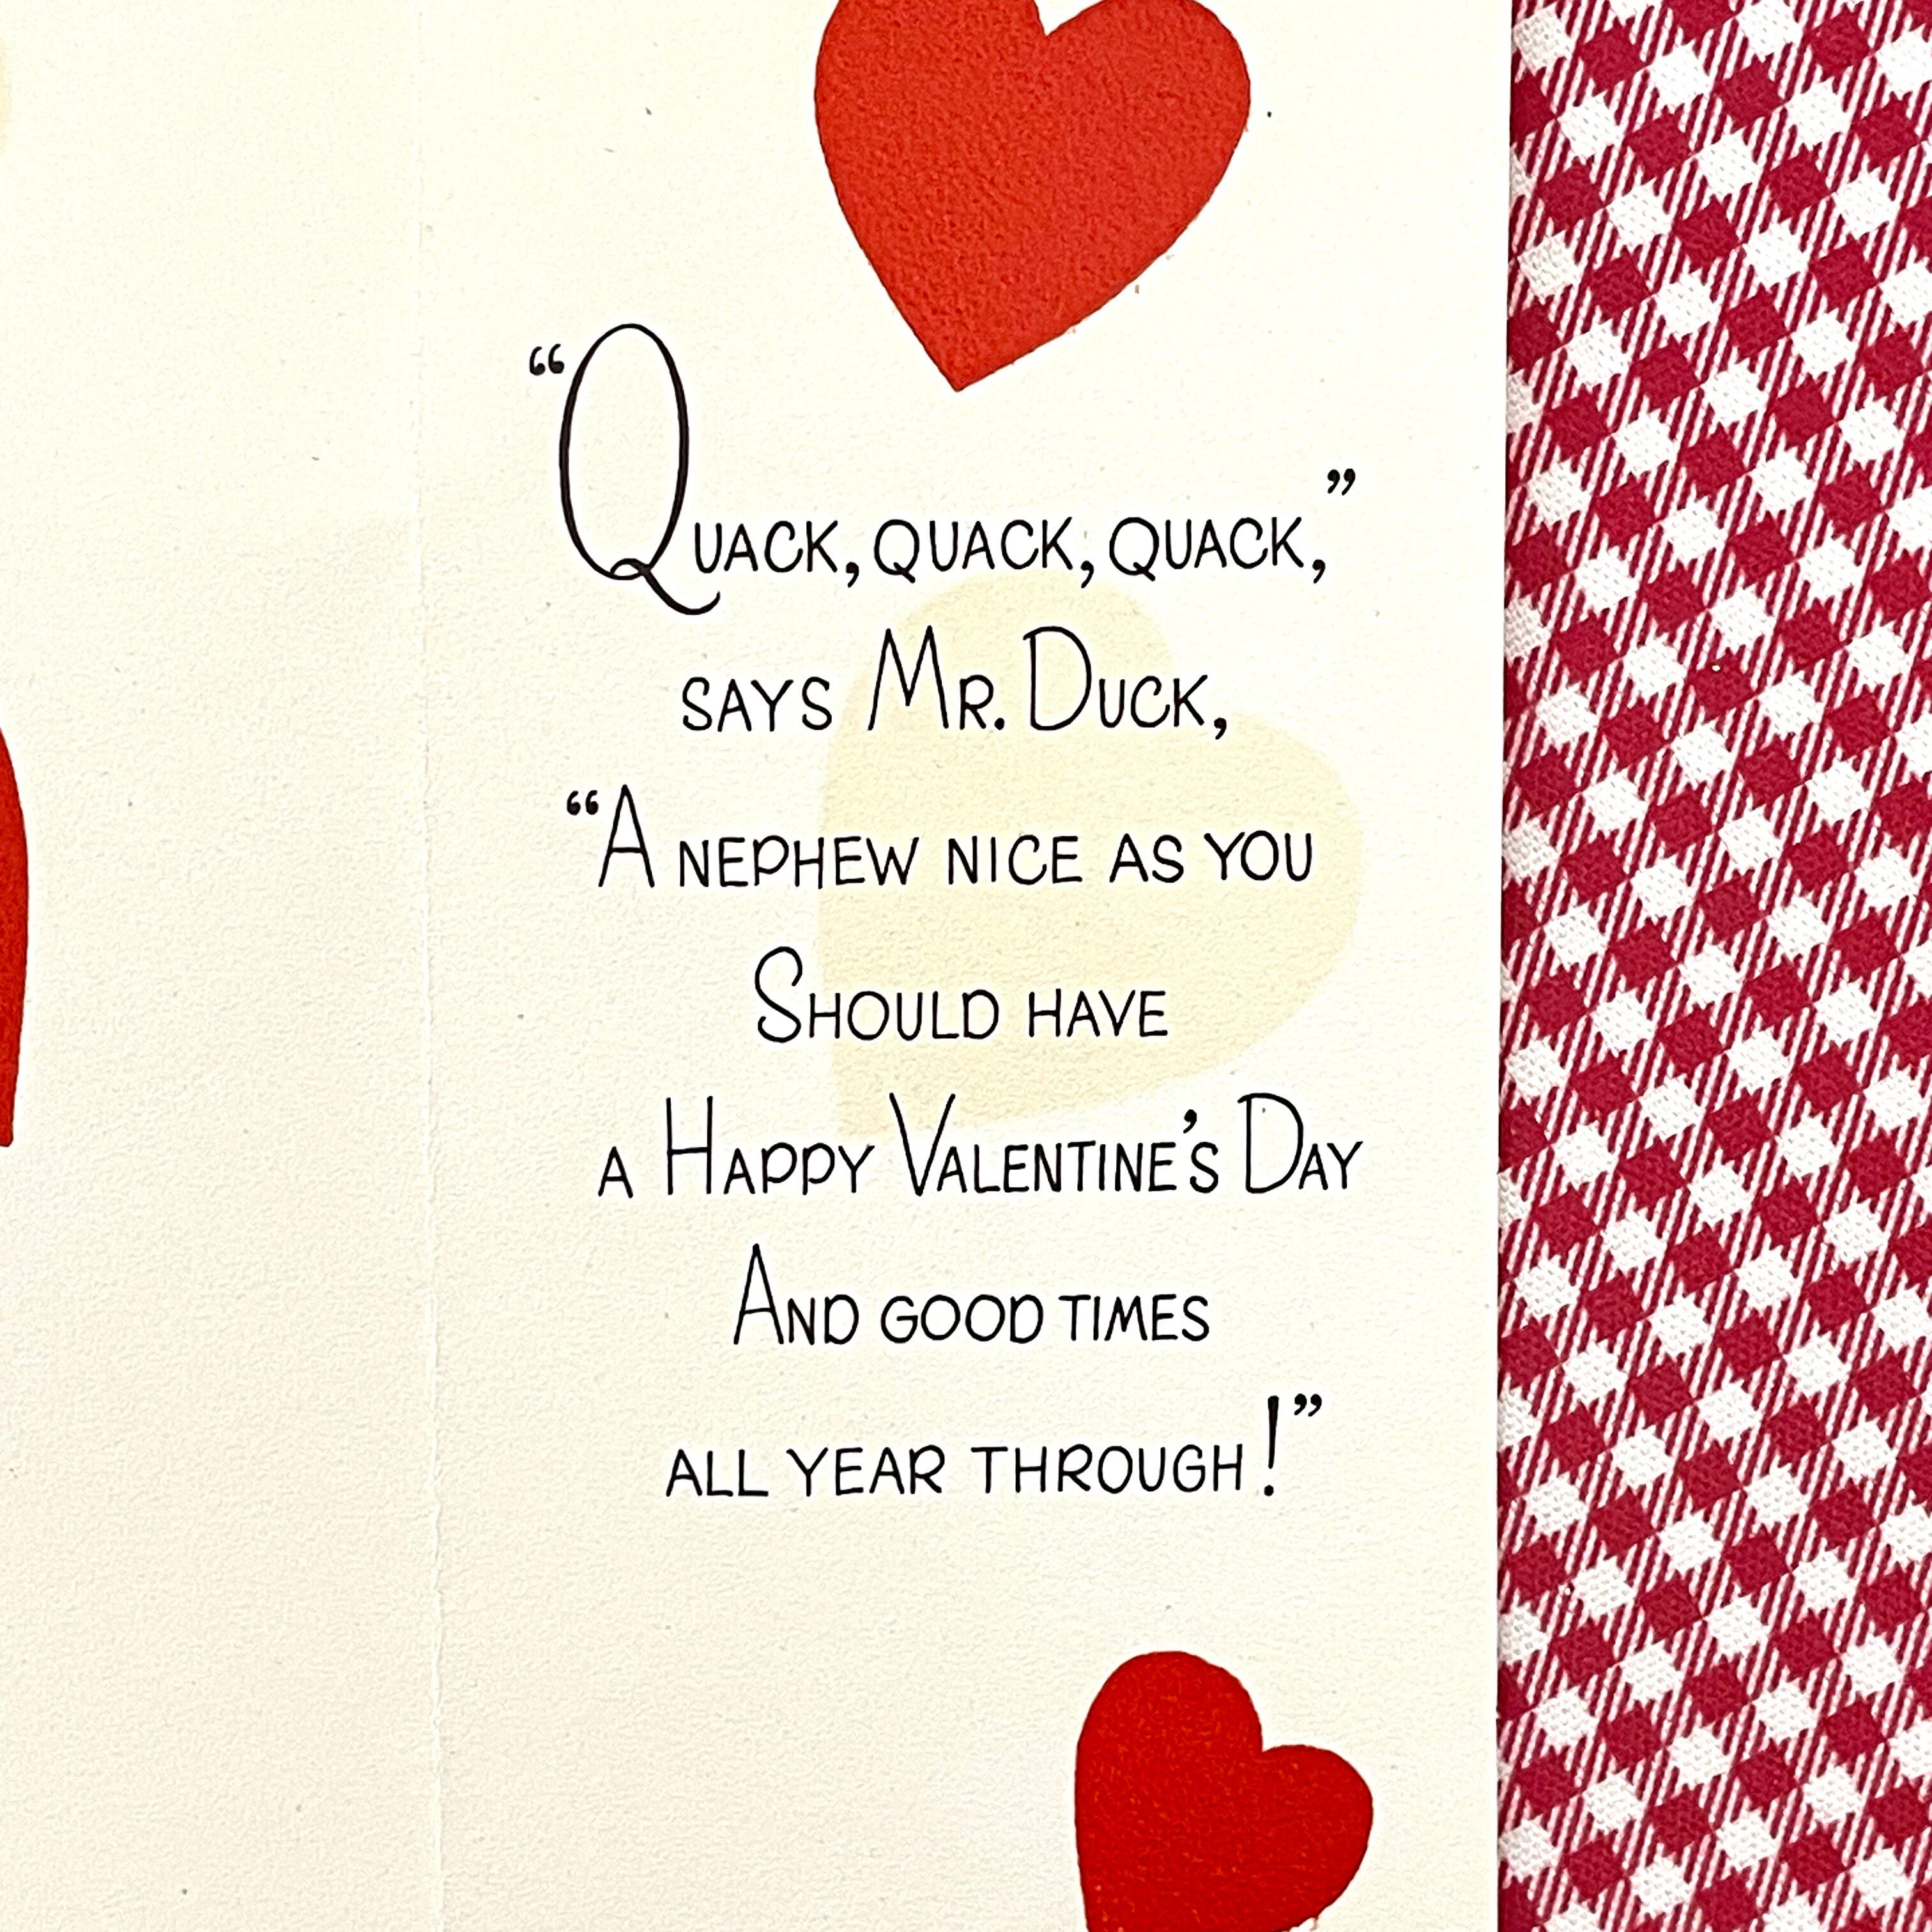 “Quack, quack, quack,”
says Mr. Duck,
“A nephew nice as you
Should have
a Happy Valentine’s Day
And good times
all year through!”